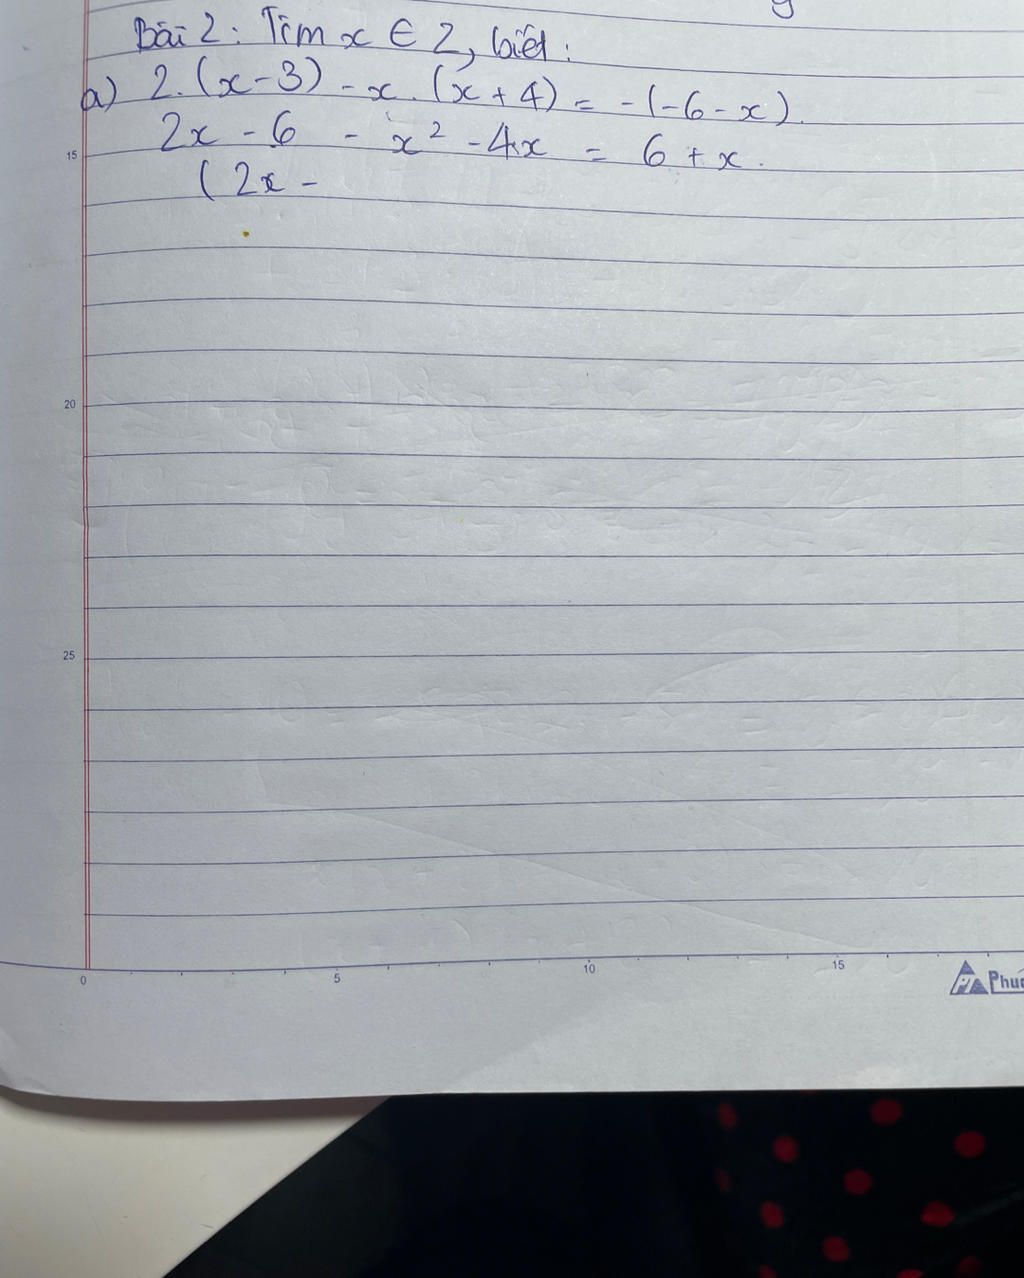 Bài 2: Tìm x ∈ Z, biết:
a) 2.(x-3) - x.(x+4) = -(-6-x).
2x - 6 - x² - 4x = 6 + x.
(2x -
15
20
25
0 5 10 15